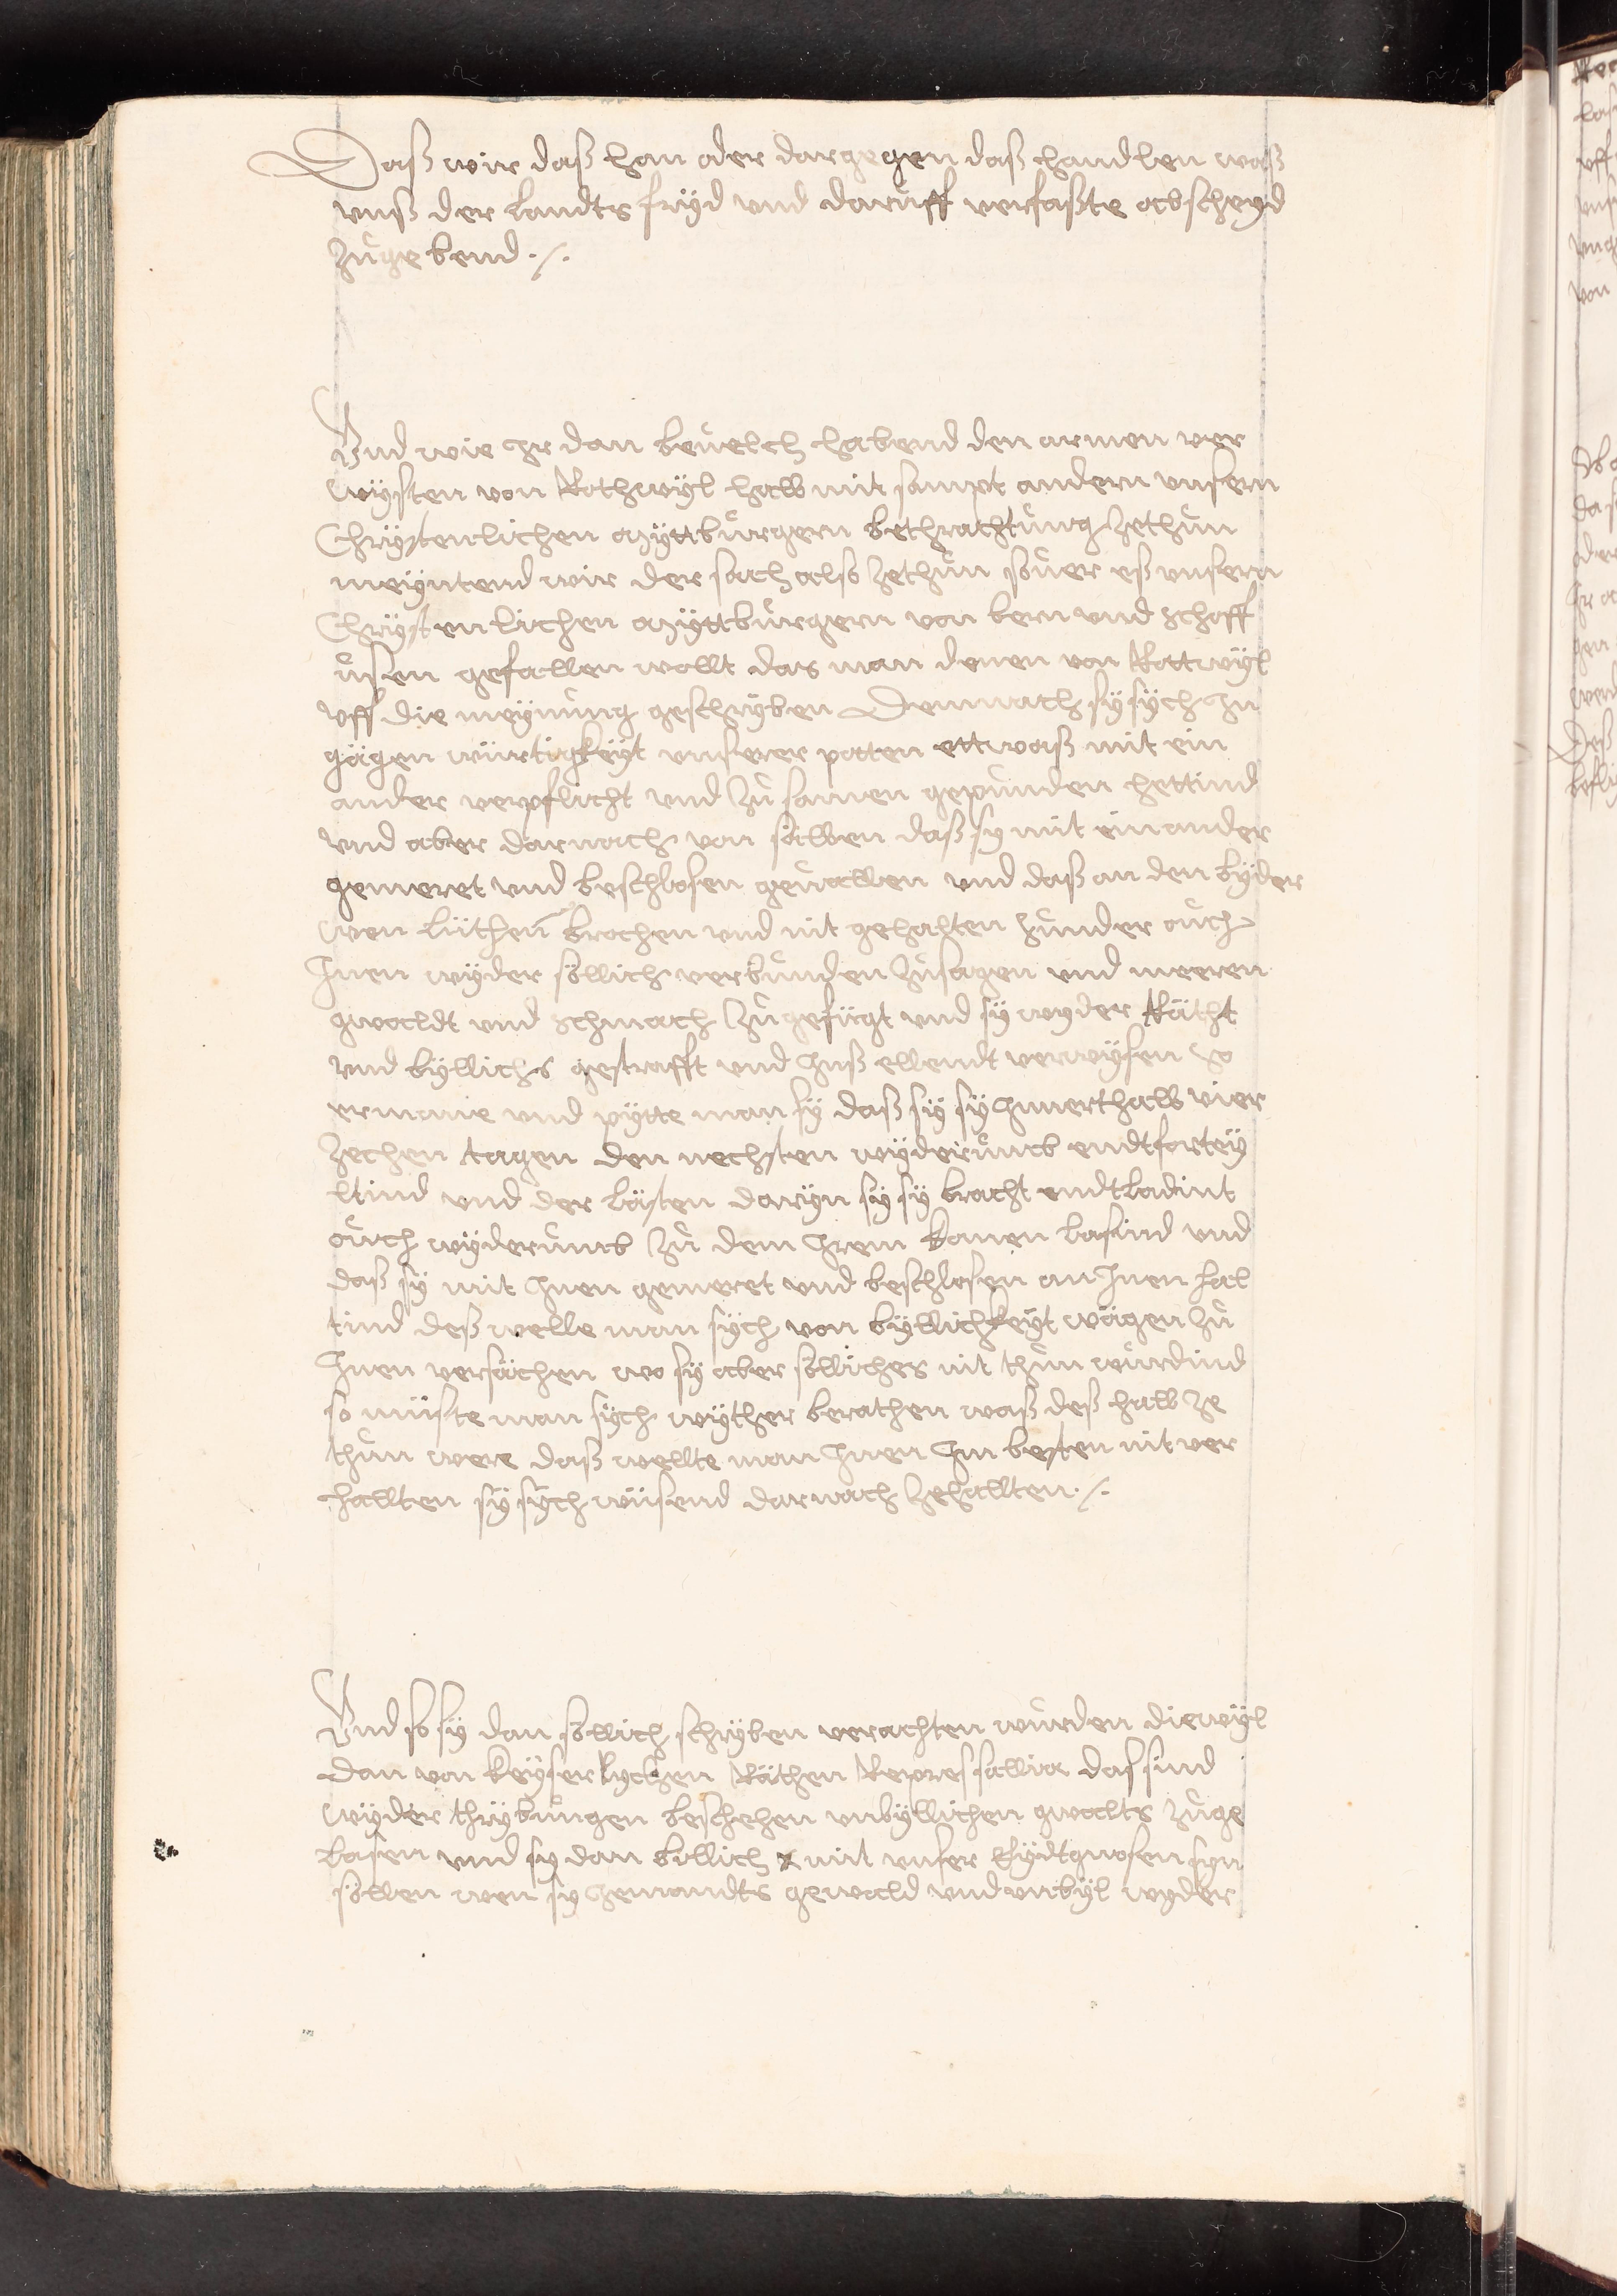 Daß wir daß han oder dargegen daß handlen waß
unß der landts fryd und daruff verfaßte abscheyd
zugebend ./.
Und wie Jr dan bevelch habend den armen ver
wysten von Rothwyl halb mit sampt andern unsern
Chrystenlichen myttburgern bethrachtung zethun
meyntend wir der sach also zethun sover eß unsern
Chrystenlichen myttburgern von bern und schaff
usen gefallen wollt das man denen von Rottwyl
uff die meynung geschryben Demnach sy sych Jn
gägen würtigkeyt unserer potten ettwaß mit ein
ander verpflicht und zu samen gepunden hettind
und aber darnach von sölben daß sy mit ein ander
gemeret und beschlosen gevallen und daß an den byder
wen lüthen brochen und nit gehalten sunder ouch
Jnen wyder söllich verbunden zusagen und meeren
gwaldt und schmach zugefügt und sy wyder Rächt
und byllichs gestrafft und Jnß ellendt verwysen so
ermane und pytte man sy daß sy sy Jnnerthalb vier
zechen tagen den nechsten wyderumb endtfortey
ltind und der lästen daryn sy sy bracht endtladint
ouch wyderumb zu dem Jrem komen lasind und
daß sy mit Jnen gemeret und beschlosen an Jnen hal
tind deß welle man sych von byllichkeyt wägen zu
Jnen versächen wo sy aber söllichs nit thun wurdind
so müste man sych wyther berathen waß deß halb ze
thun were daß wellte man Jnen Jm besten nit ver
hallten sy sych wüsend darnach zehallten ./.
Und so sy dan söllich schryben verachten wurden diewyl
dan von keyserlychen Räthen Repressallia das sind
wyder thrybungen beschehen unbyllichen gwalts zuge
lasen und sy dan billich mit unser Eydtgnosen syn
söllen wen sy Jemandts gewald und unbyl wyder